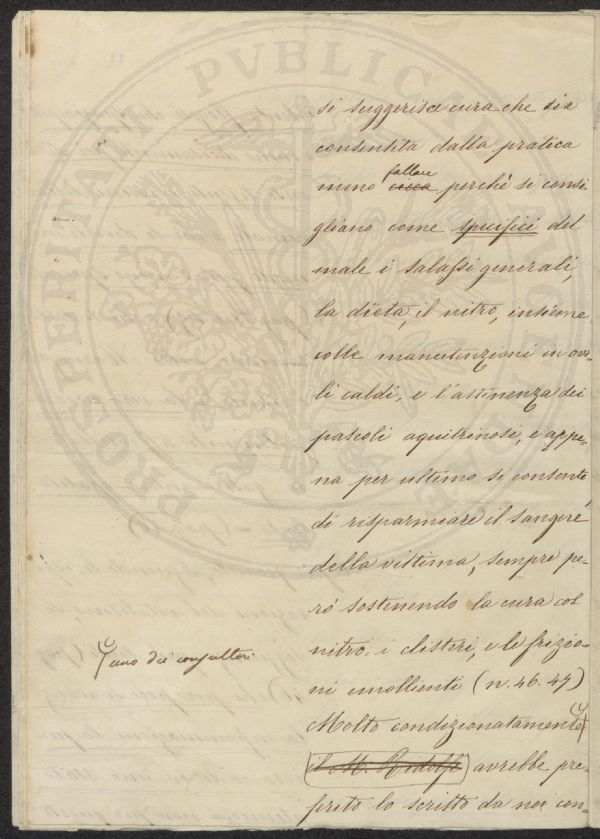 si suggerisce cura che sia
consentita dalla pratica
meno fallace cieca perchè si consi
gliano come specifici del
male i salassi generali,
la dieta, il nitro, insieme
colle manutenzioni in ovi-
li caldi, e l'astinenza dei
pascoli aquitrinosi, e appe-
na per ultimo si consente,
di risparmiare il sangue
della vittima, sempre pe-
rò sostenendo la cura col
nitro, i clisteri, e le frizio-
ni emollienti (n. 46. 47)
Molto condizionatamente
il M. Ridolfi avrebbe pre-
ferito lo scritto da noi con-
uno dei consultori
PVBLICAE
PROSPERITATI